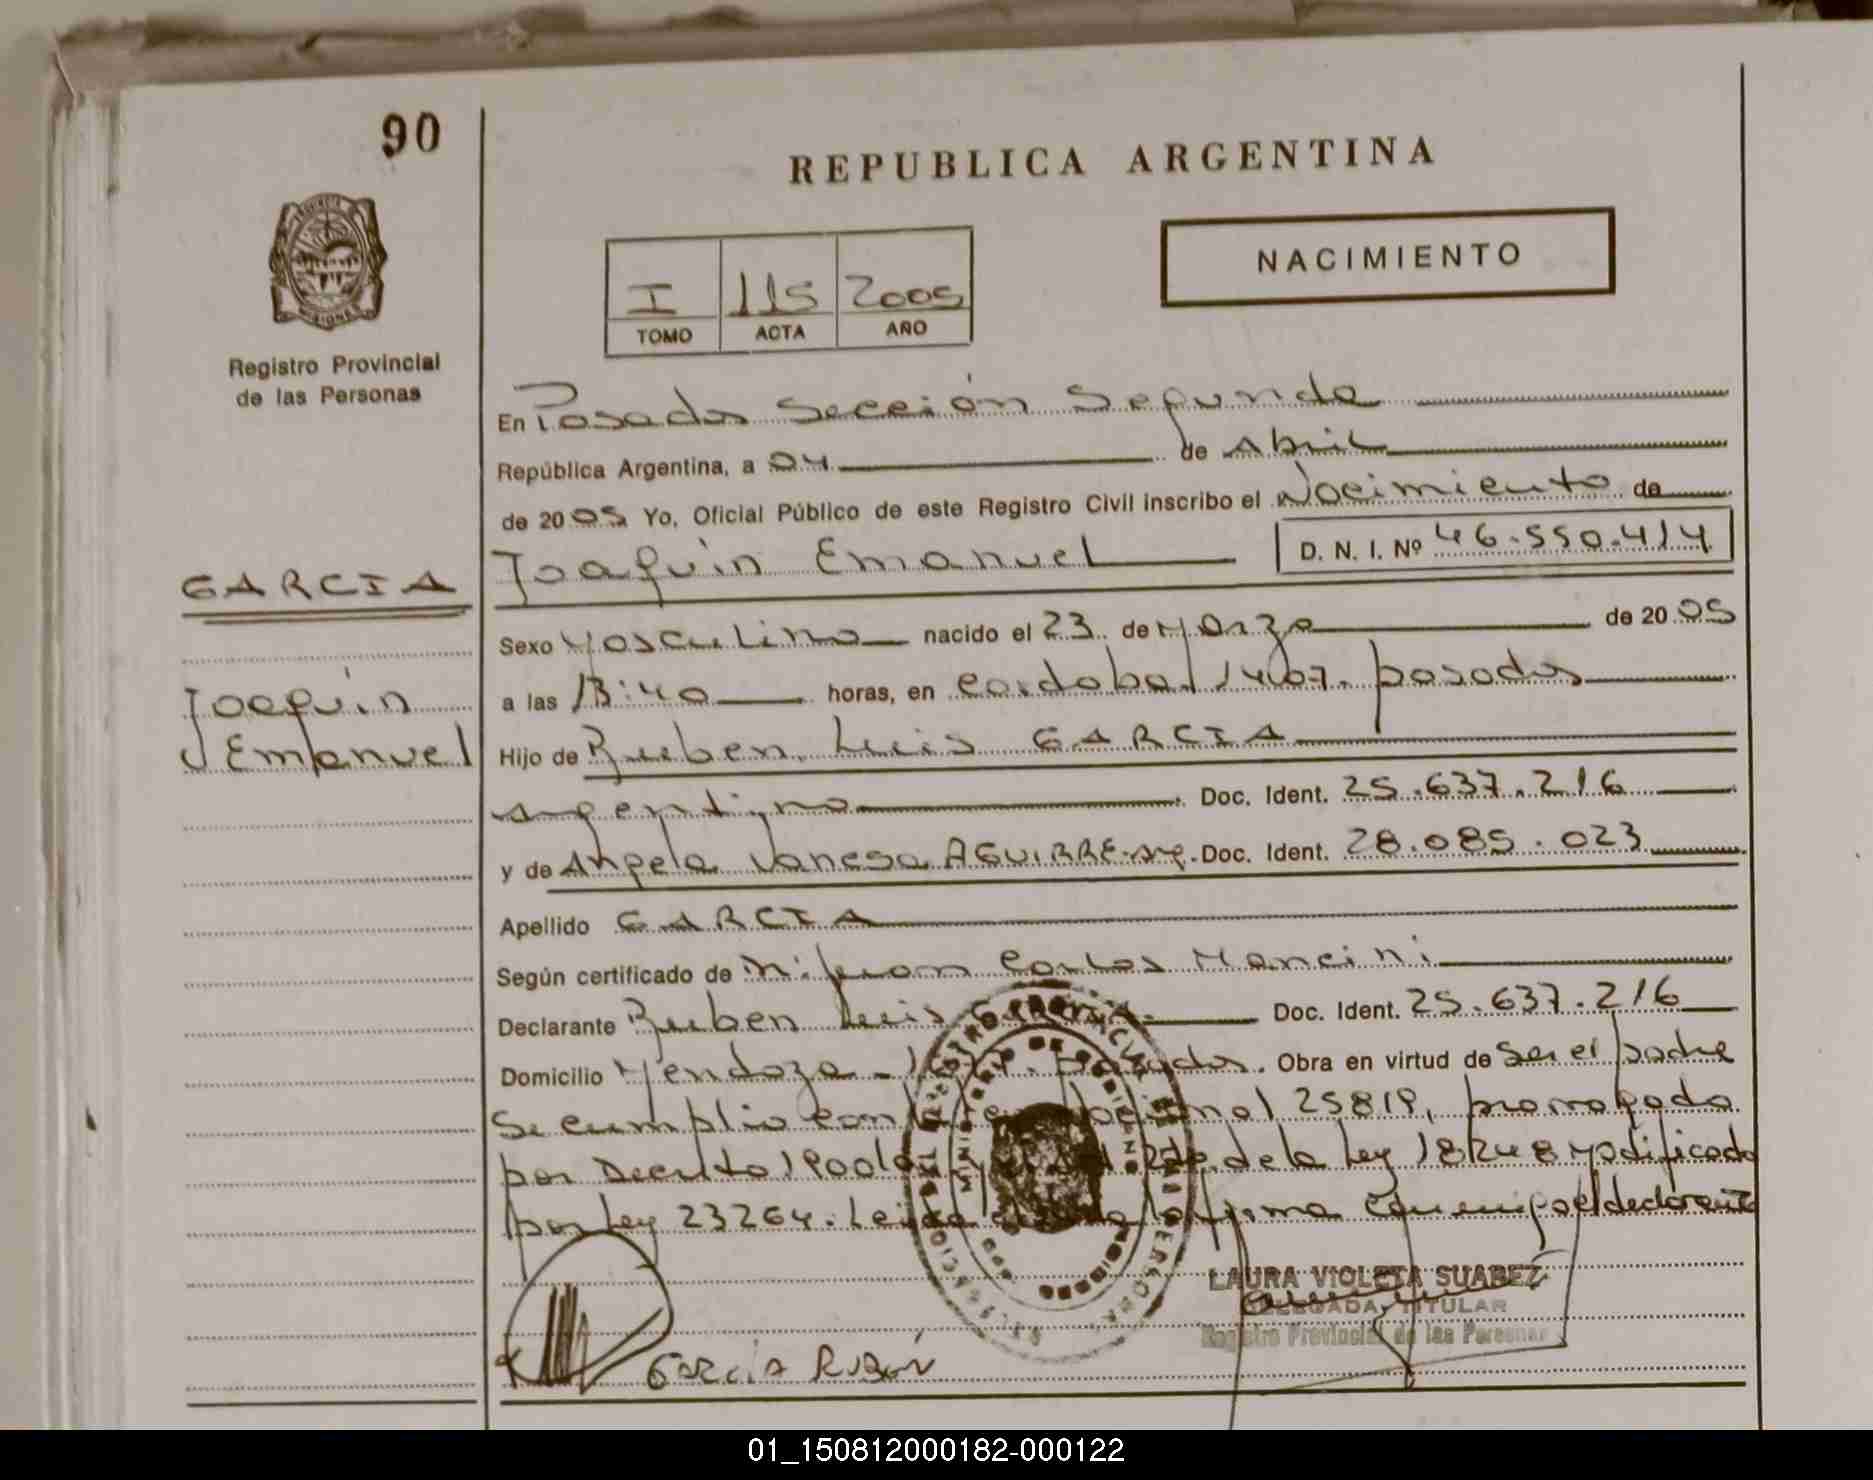 90
REPUBLICA ARGENTINA
NACIMIENTO
I 115 2005
TOMO ACTA AÑO
Registro Provincial
de las Personas
En Posadas Sección Segunda
República Argentina, a 04 de Abril
de 2005 Yo, Oficial Público de este Registro Civil inscribo el Nacimiento de
Joaquín Emanuel D. N. I. Nº 46.550.414
GARCIA
Joaquín
Emanuel
Sexo Masculino nacido el 23 de Marzo de 2005
a las 13:40 horas, en Cordoba 1407. Posadas
Hijo de Ruben Luis GARCIA
argentino Doc. Ident. 25.637.216
y de Angela Vanesa AGUIRRE-arg. Doc. Ident. 28.085.023
Apellido GARCIA
Según certificado de Juan Carlos Mancini
Declarante Ruben Luis GARCIA Doc. Ident. 25.637.216
Domicilio Mendoza - Posadas. Obra en virtud de Ser el padre
Se cumplio con Nacional 25819, promulgada
por Decreto de la Ley 18248 Modificado
por Ley 23264. Leida el acta la firma conmigo el declarante
LAURA VIOLETA SUAREZ
DELEGADA TITULAR
Registro Provincial de las Personas
GARCIA RUBEN
01_150812000182-000122